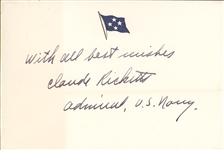 With all best wishes
Claude Ricketts
admiral, U.S. Navy.